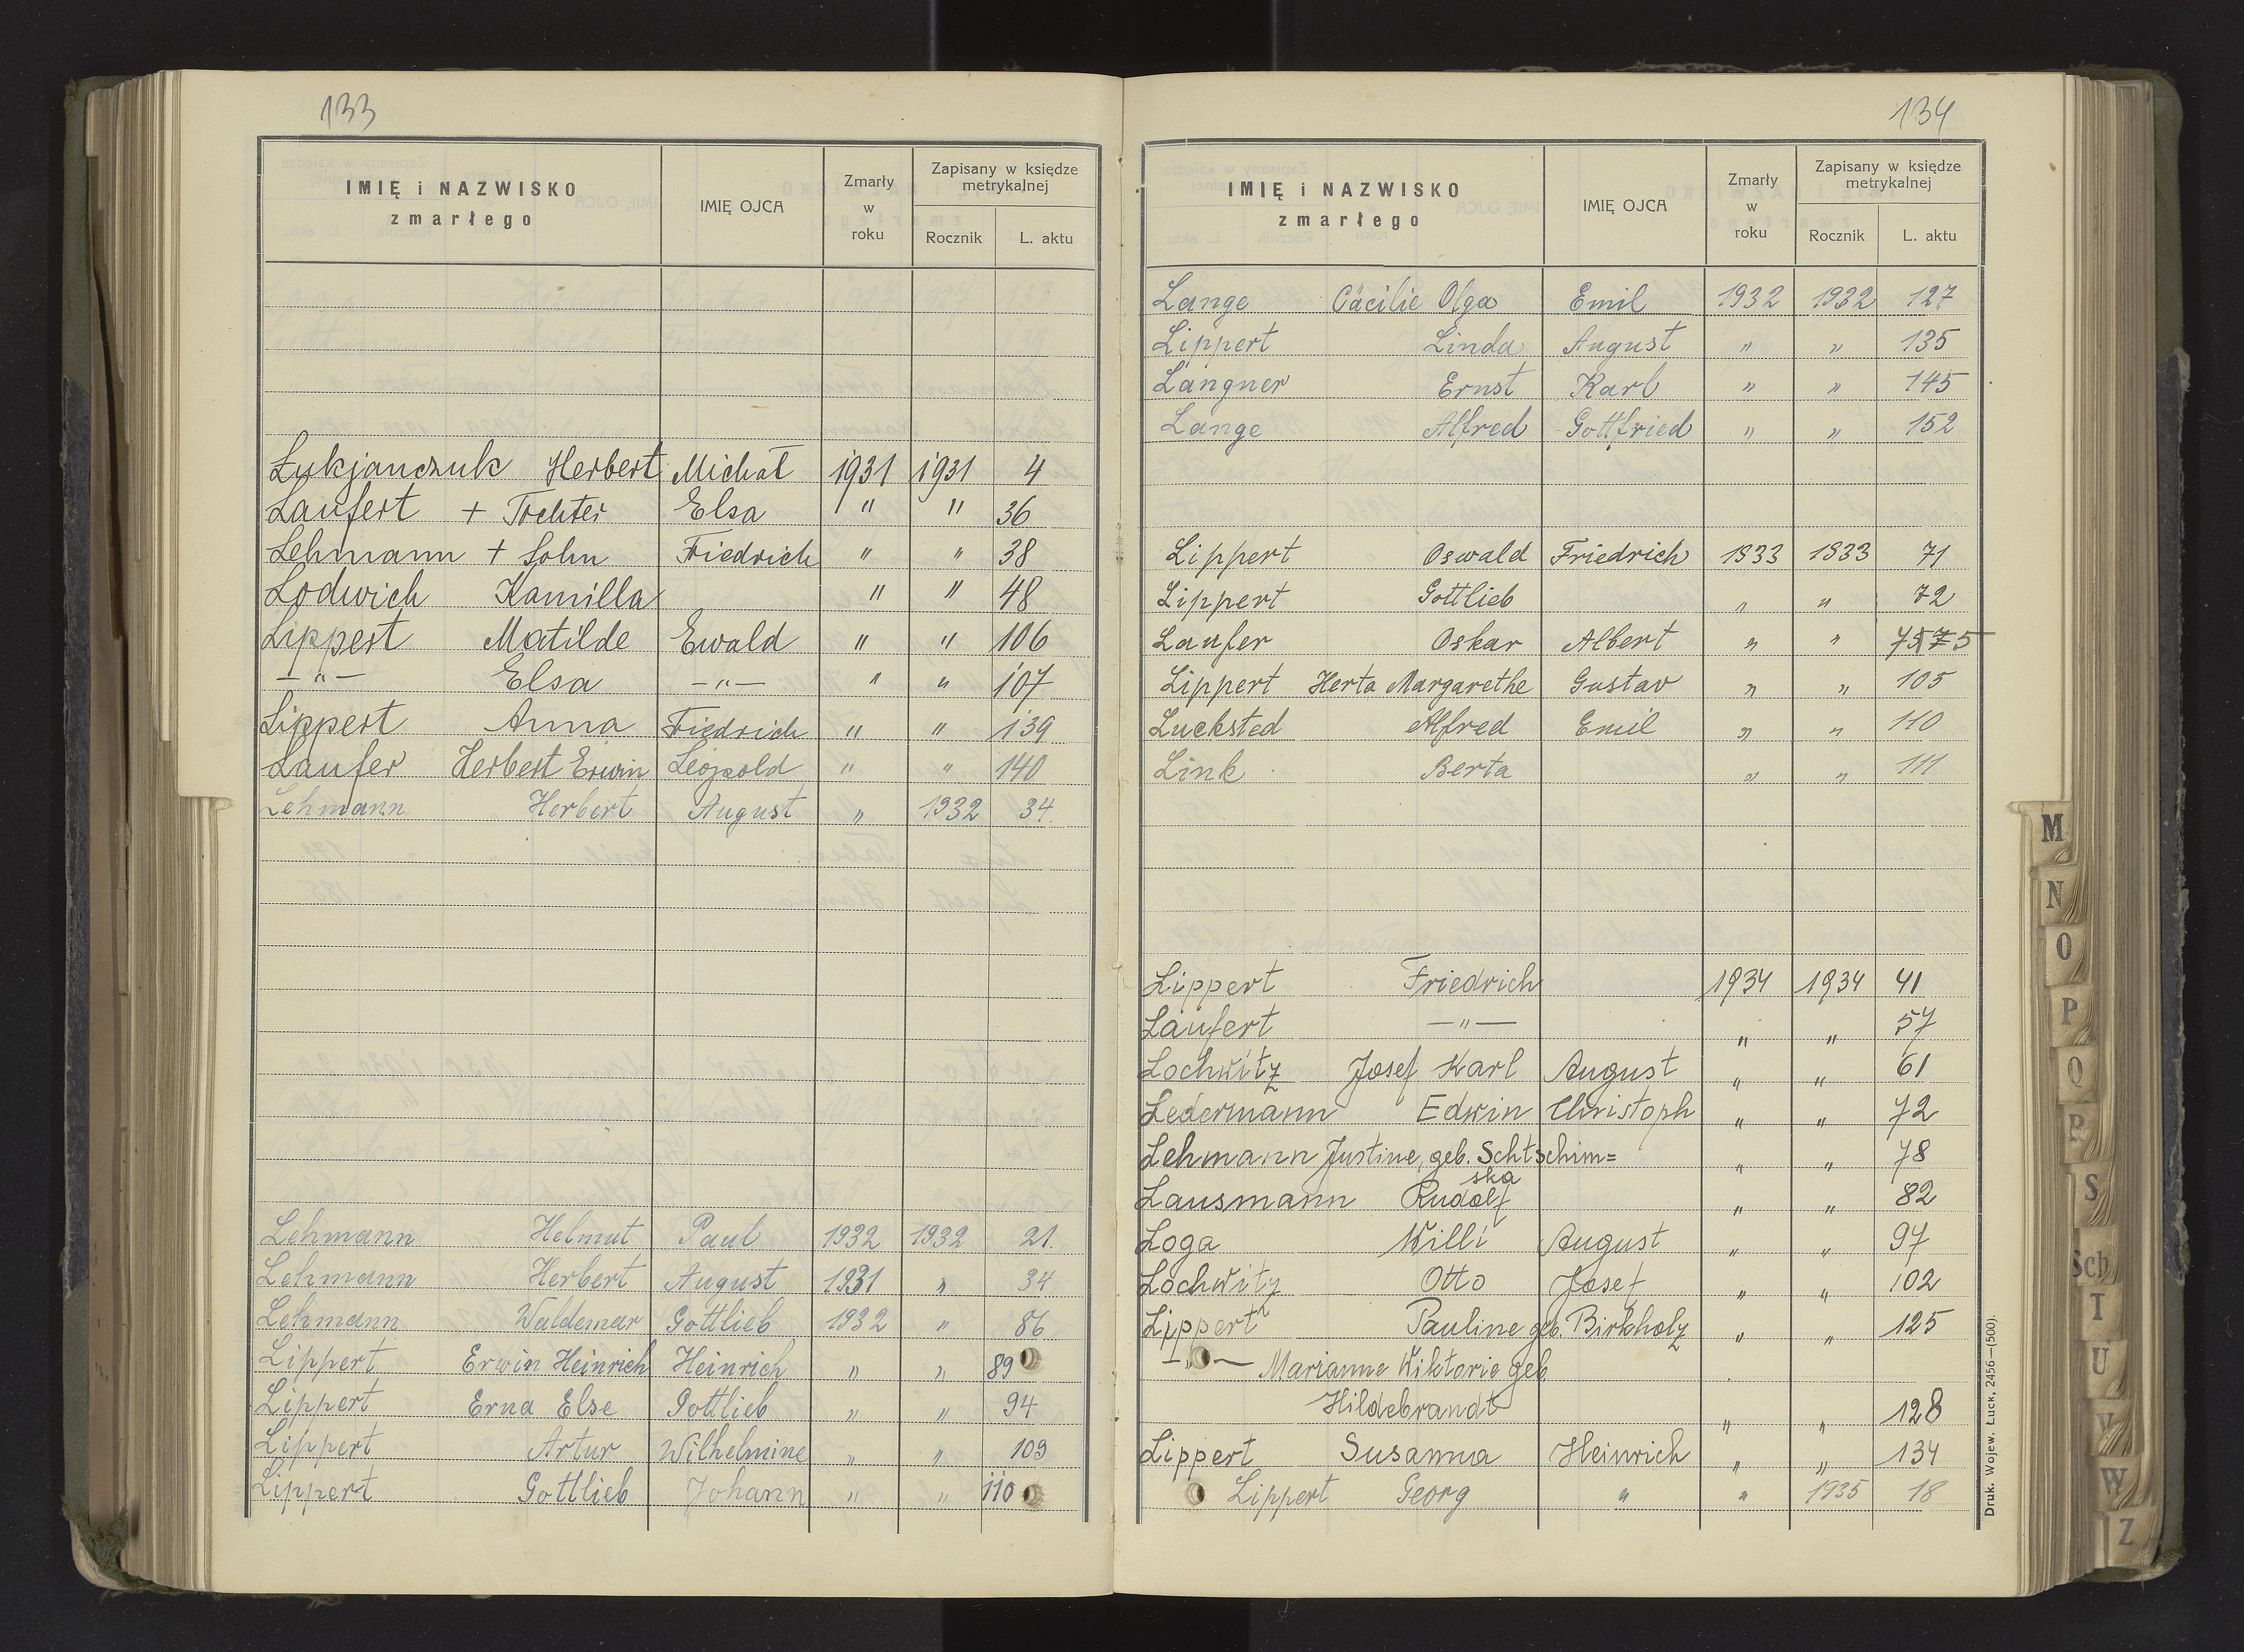 133
IMIĘ i NAZWISKO zmarłego IMIĘ OJCA Zmarły w roku Zapisany w księdze metrykalnej Rocznik L. aktu
Lukjanczuk Herbert Michał 1931 1931 4
Laufert + Tochter Elsa " " 36
Lehmann + Sohn Friedrich " " 38
Lodwich Kamilla " " 48
Lippert Matilde Ewald " " 106
—"— Elsa —"— " " 107
Lippert Anna Friedrich " " 139
Laufer Herbert Erwin Leopold " " 140
Lehmann Herbert August " 1932 34.
Lehmann Helmut Paul 1932 1932 21.
Lehmann Herbert August 1931 " 34
Lehmann Waldemar Gottlieb 1932 " 86
Lippert Erwin Heinrich Heinrich " " 89
Lippert Erna Else Gottlieb " " 94
Lippert Artur Wilhelmine " " 109
Lippert Gottlieb Johann " " 110
134
IMIĘ i NAZWISKO zmarłego IMIĘ OJCA Zmarły w roku Zapisany w księdze metrykalnej Rocznik L. aktu
Lange Cäcilie Olga Emil 1932 1932 127
Lippert Linda August " " 135
Langner Ernst Karl " " 145
Lange Alfred Gottfried " " 152
Lippert Oswald Friedrich 1933 1933 71
Lippert Gottlieb " " 72
Laufer Oskar Albert " " 75
Lippert Herta Margarethe Gustav " " 105
Lucksted Alfred Emil " " 110
Link Berta " " 111
Lippert Friedrich 1934 1934 41
Laufert —"— " " 57
Lochwitz Josef Karl August " " 61
Ledermann Edwin Christoph " " 72
Lehmann Justine, geb. Schtschim= " " 78
ska
Lausmann Rudolf " " 82
Loga Willi August " " 97
Lochwitz Otto Josef " " 102
Lippert Pauline geb. Birkholz " " 125
—"— Marianne Wiktorie geb
Hildebrandt " " 128
Lippert Susanna Heinrich " " 134
Lippert Georg " " 1935 18
Druk. Wojew. Łuck, 2456—(500).
M
N
O
P
Q
R
S
Sch
T
U
V
W
Z